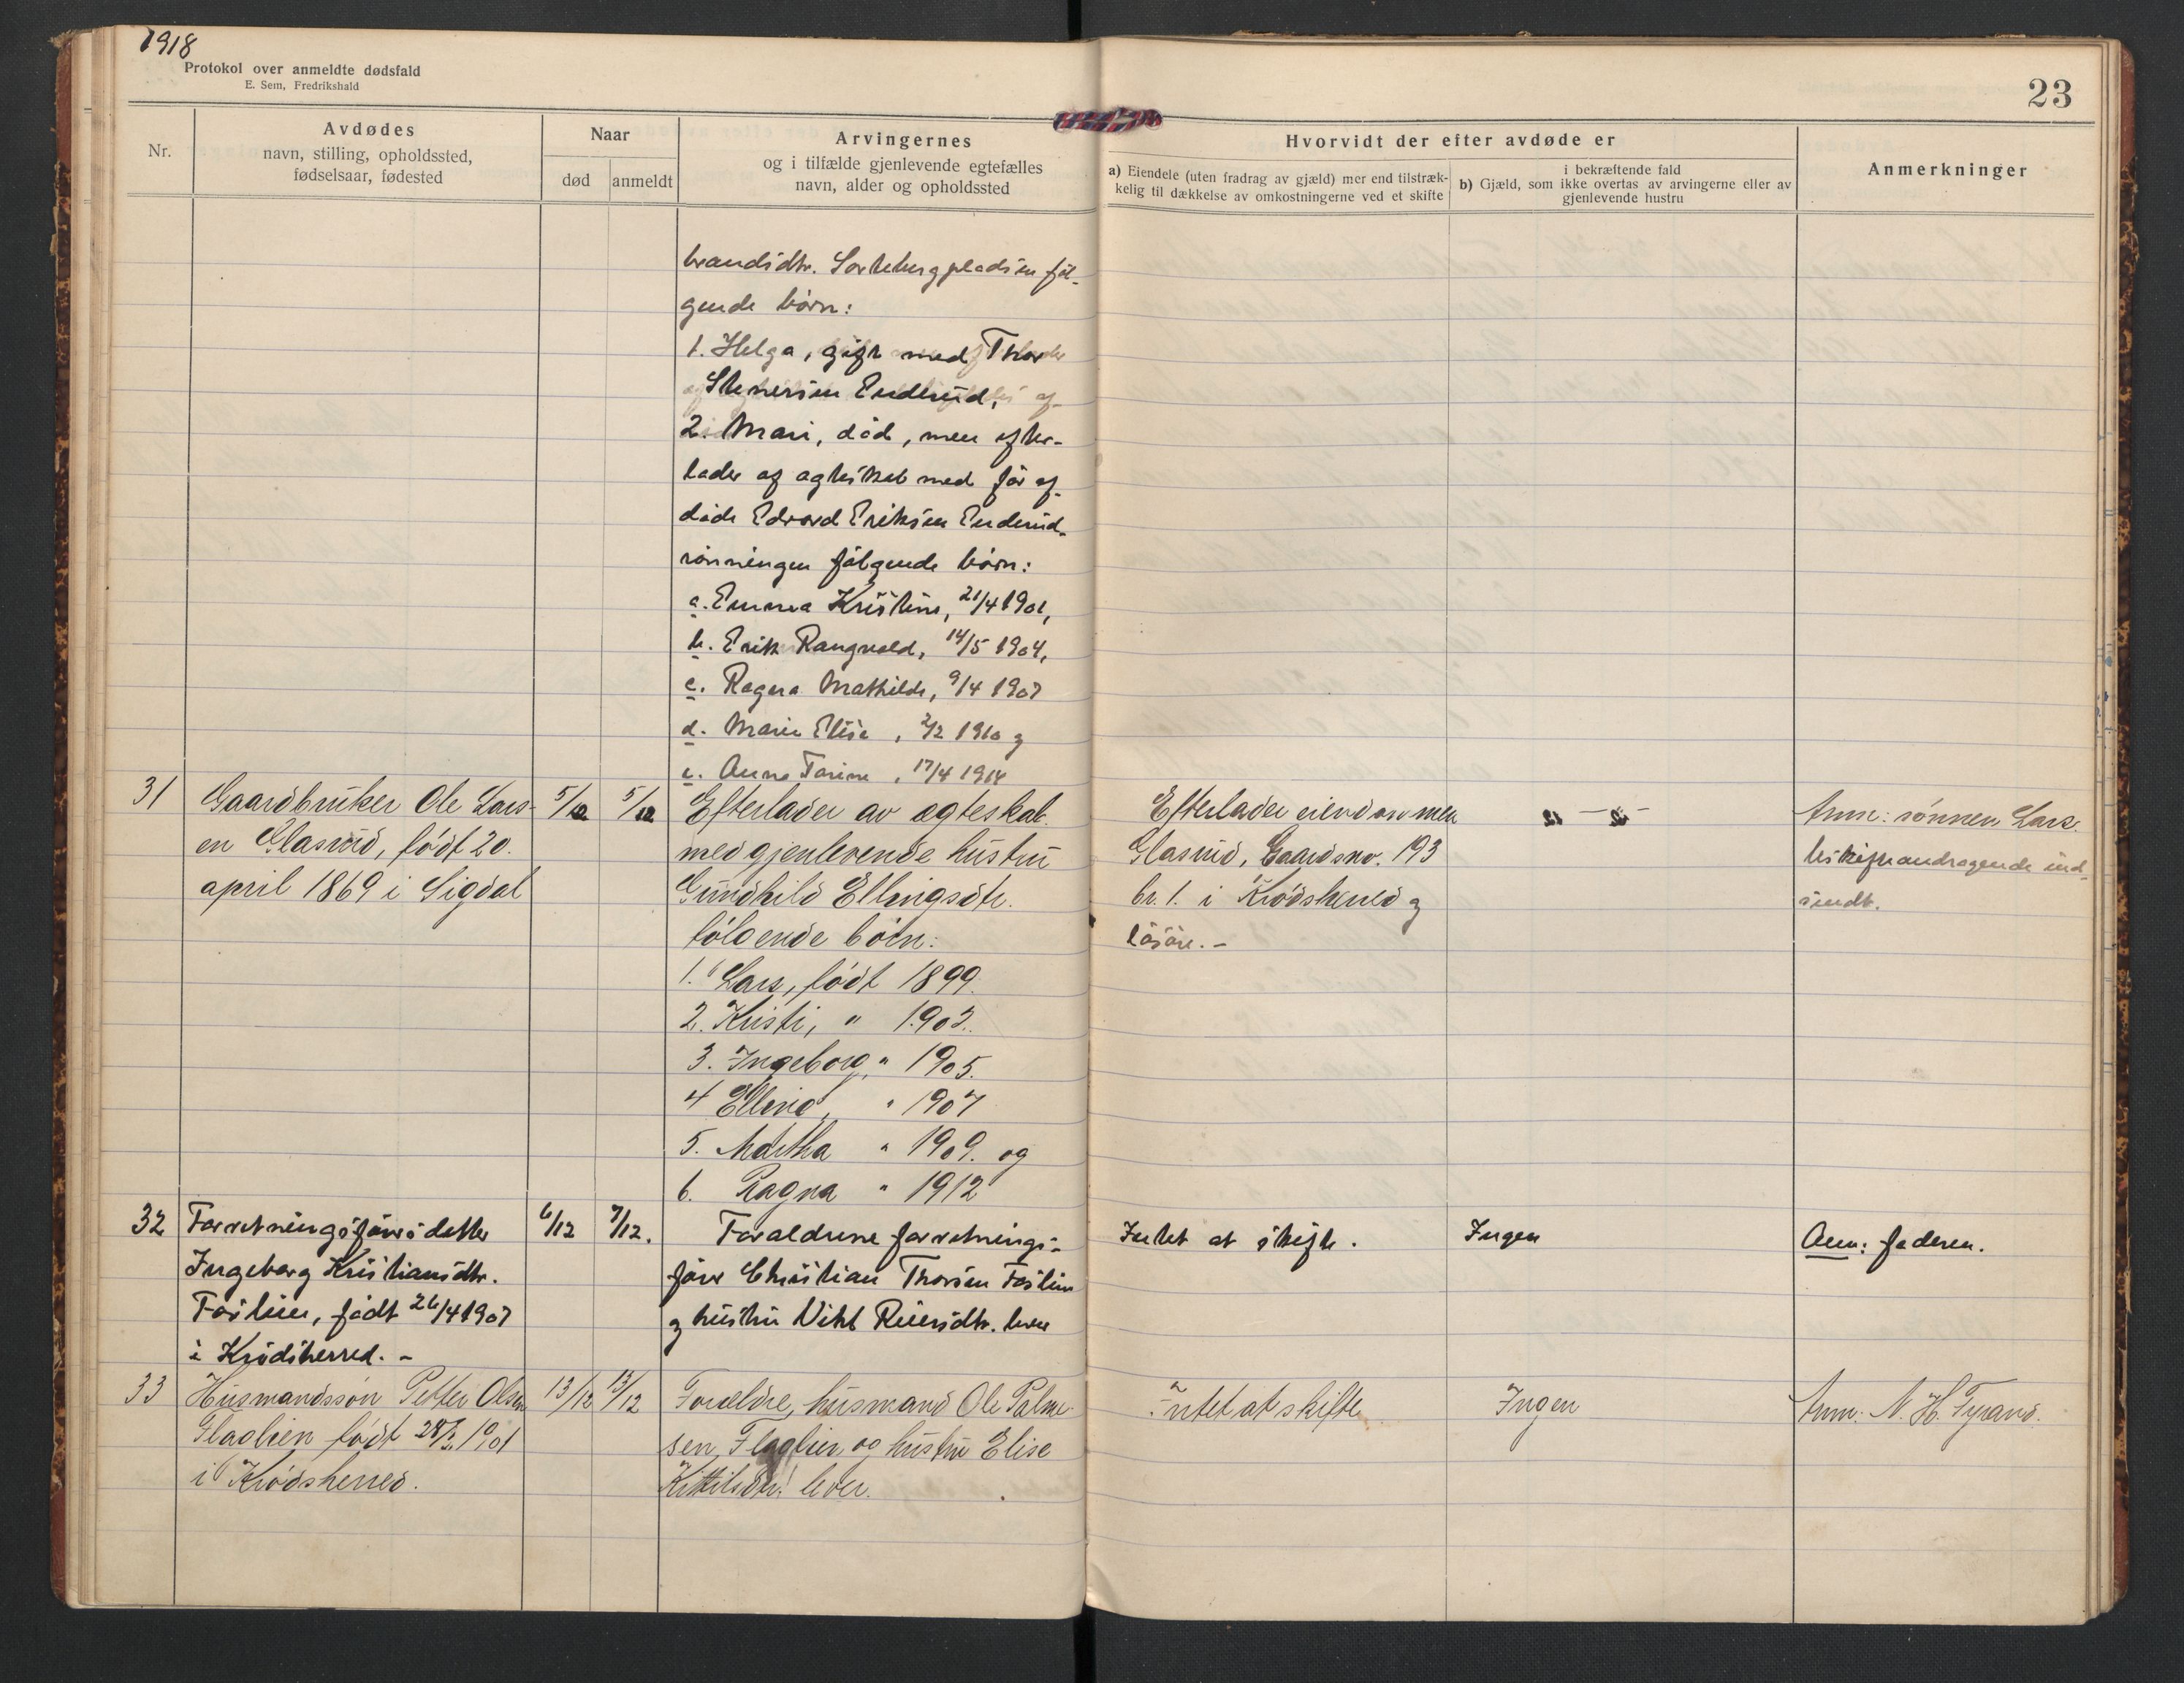 1918
Protokol over anmeldte dødsfald
E. Sem, Fredrikshald
23
Nr.
Avdødes
navn, stilling, opholdssted,
fødselsaar, fødested
Naar
død
anmeldt
Arvingernes
og i tilfælde gjenlevende egtefælles
navn, alder og opholdssted
Hvorvidt der efter avdøde er
a) Eiendele (uten fradrag av gjæld) mer end tilstræk-
kelig til dækkelse av omkostningerne ved et skifte
i bekræftende fald
b) Gjæld, som ikke overtas av arvingerne eller av
gjenlevende hustru
Anmerkninger
brandsdtr. Sortebergpladsen føl-
gende børn:
1. Helga, gift med Thorder
Stenersen Enderud,
2. Mari, død, men efter-
lader af ægteskab med før af-
døde Edvard Eriksen Enderud-
rønningen følgende børn:
a. Emma Kristine, 21/4 1901,
b. Erik Rangvald, 14/5 1904,
c. Ragna Mathilde, 9/4 1907
d. Marie Elise, 2/2 1910 og
e. Anna Torine, 17/4 1914
31
Gaardbruker Ole Lars-
en Glasrud, født 20.
april 1869 i Sigdal
5/12
5/12
Efterlader av ægteskab
med gjenlevende hustru
Gundhild Ellingsdtr.
følgende børn:
1. Lars, født 1899.
2. Kristi, " 1903.
3. Ingeborg, " 1905.
4 Elling, " 1907
5. Martha " 1909. og
6. Ragna " 1912
Efterlader eiendommen
Glasrud, Gaardsno. 193
br. 1. i Krødsherred og
løsøre. -
Anm: sønnen Lars.
Uskifteandragende ind-
sendt.
32
Forretningsførersdatter
Ingeborg Kristiansdtr.
Foslien, født 26/4 1907
i Krødsherred. -
6/12
7/12.
Forældrene forretnings-
fører Christian Thorsen Foslien
og hustru Vikt Reiersdtr. lever
Intet at skifte.
Ingen
Anm: faderen.
33
Husmandssøn Petter Olsen
Flaglien født
1901
i Krødsherred.
13/12
13/12
Forældre, husmand Ole Palme-
sen Flaglien og hustru Elise
Kittilsdtr. lever.
Intet at skifte
Ingen
Anm: N. H. Fyrand.